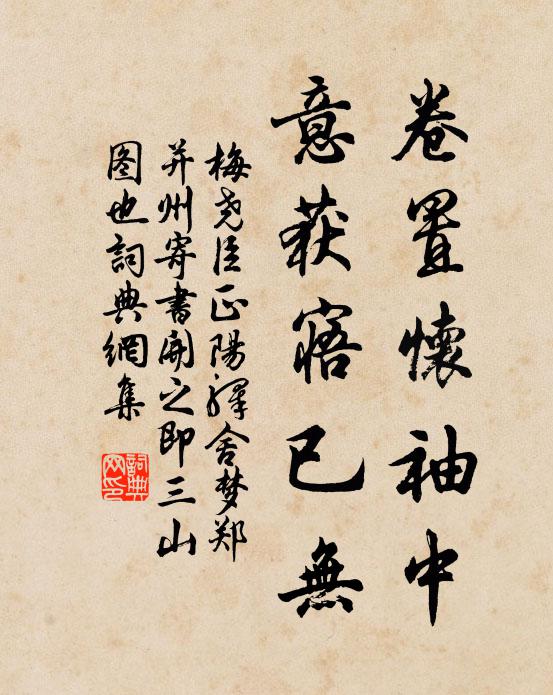 卷置懷袖中
意获寤已無
梅尧臣正陽驛舍梦郑
并州寄書開之即三山
图也詞典網集
詞典网印